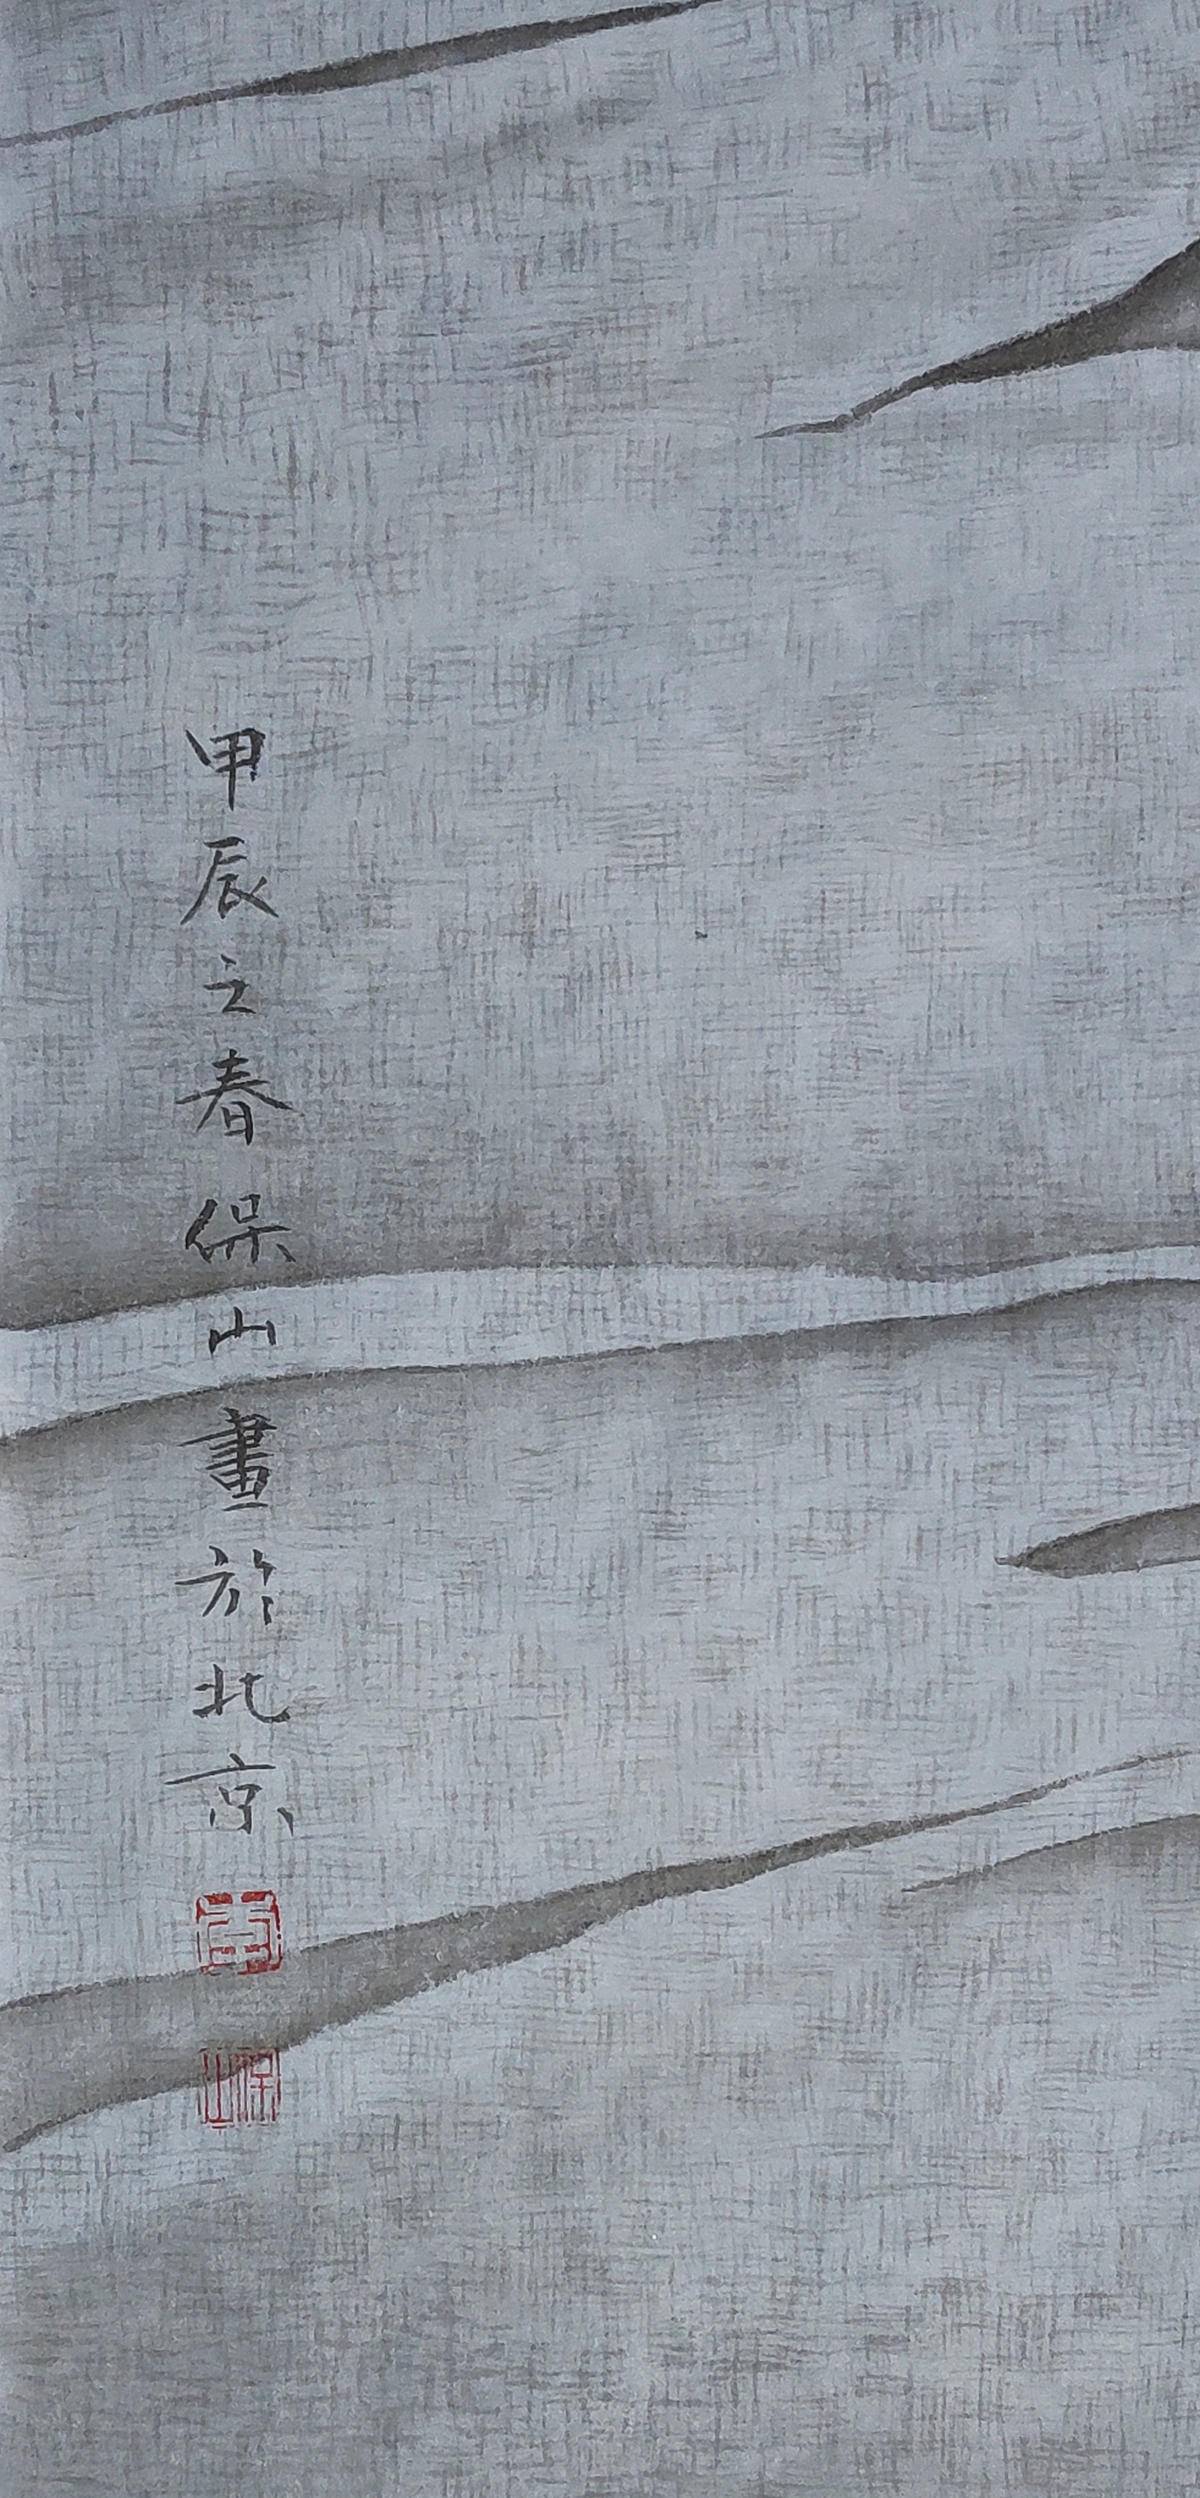 甲辰之春 保山畫於北京
保山